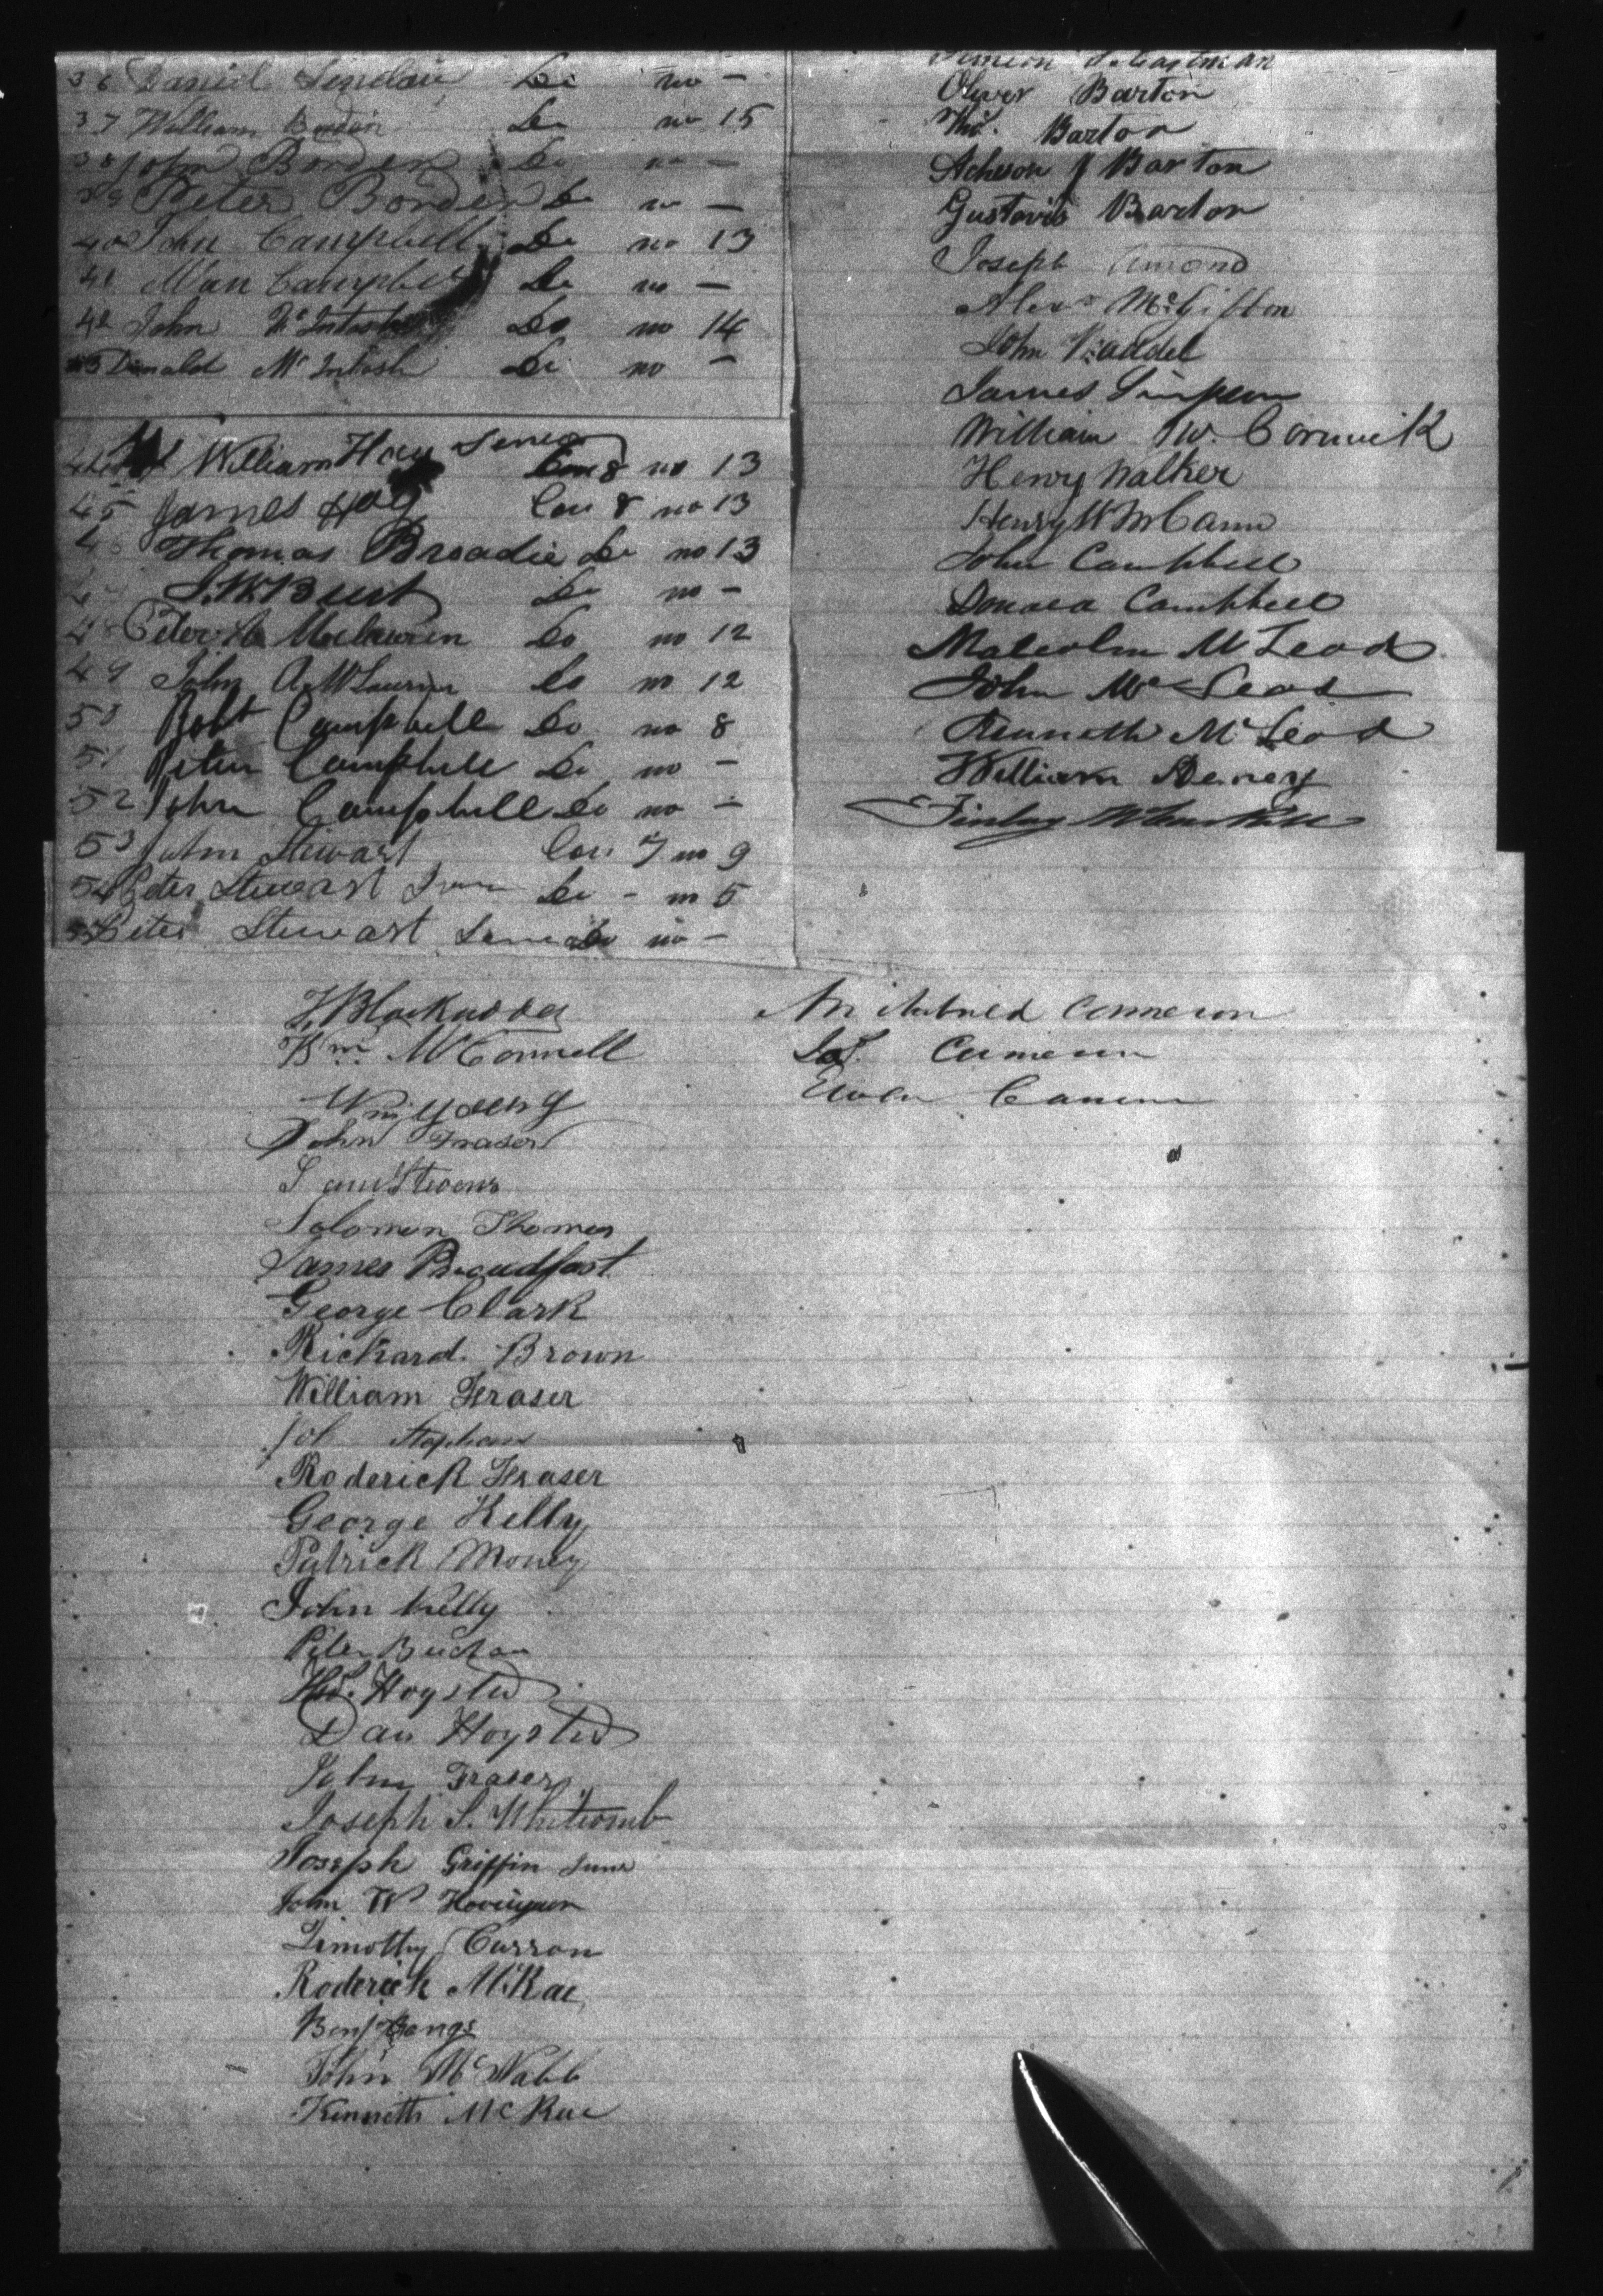 36 Daniel Sinclair Do no -
37 William Borden Do no 15
38 John Borden Do no -
39 Peter Borden Do no -
40 John Campbell Do no 13
41 Allan Campbell Do no -
42 John McIntosh Do no 14
43 Donald McIntosh Do no -
44 William Hay Senor Con 8 no 13
45 James Hay Con 8 no 13
46 Thomas Broadie Do no 13
Do no -
48 Peter McLauren Do no 12
49 John A. McLaurin Do no 12
50 Robt Campbell Do no 8
51 Peter Campbell Do no -
52 John Campbell Do no -
53 John Stewart Con 7 no 9
54 Peter Stewart Do - no 5
55 Peter Stewart Senor Do no -
Oliver Barton
Thos. Barton
Acheson Barton
Gustavis Barton
Joseph Amond
Alexr McGibbon
John Waddel
James Simpson
William W. Cormick
Henry Walker
Henry W McCann
John Campbell
Donald Campbell
Malcolm McLeod
John McLeod
Kenneth McLeod
William Deney
Finlay
Wm McConnell
Wm Young
John Fraser
Sam Stevens
Solomon Thomas
James Proudfoot
George Clark
Richard Brown
William Fraser
Stephens
Roderick Fraser
George Kelly
Patrick Money
John Kelly
Peter
Thos. Hoysted
Dan Hoysted
John Fraser
Joseph S. Whitcomb
Joseph Griffin Junr
John W
Timothy Curran
Roderick McRae
Benj Bangs
John McNabb
Kenneth McRae
Archibald Cameron
Jas. Cameron
Ewen Cameron